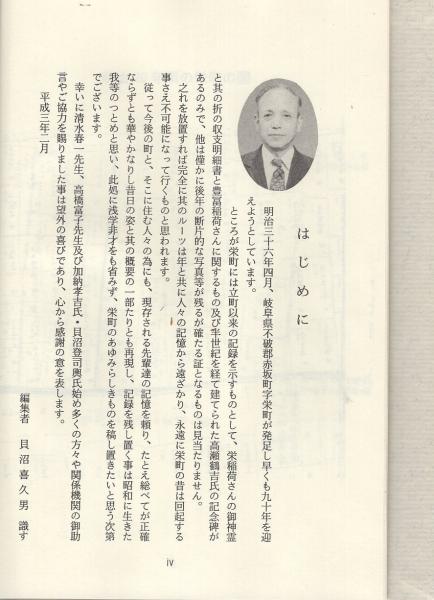 はじめに
明治三十六年四月、岐阜県不破郡赤坂町字栄町が発足し早くも九十年を迎
えようとしています。
ところが栄町には立町以来の記録を示すものとして、栄稲荷さんの御神霊
と其の折の収支明細書と豊冨稲荷さんに関するもの及び半世紀を経て建てられた高瀬鶴吉氏の記念碑が
あるのみで、他は僅かに後年の断片的な写真等が残るが確たる証となるものは見当たりません。
之れを放置すれば完全に其のルーツは年と共に人々の記憶から遠ざかり、永遠に栄町の昔は回起する
事さえ不可能になって行くものと思われます。
従って今後の町と、そこに住む人々の為にも、現存される先輩達の記憶を頼り、たとえ総べてが正確
ならずとも華やかなりし昔日の姿と其の概要の一部たりとも再現し、記録を残し置く事は昭和に生きた
我等のつとめと思い、此処に浅学非才をも省みず、栄町のあゆみらしきものを稿し置きたいと思う次第
でございます。
幸いに清水春一先生、高橋富子先生及び加納孝吉氏・貝沼登司輿氏始め多くの方々や関係機関の御助
言やご協力を賜りました事は望外の喜びであり、心から感謝の意を表します。
平成三年二月
編集者 貝沼喜久男 識す
iv